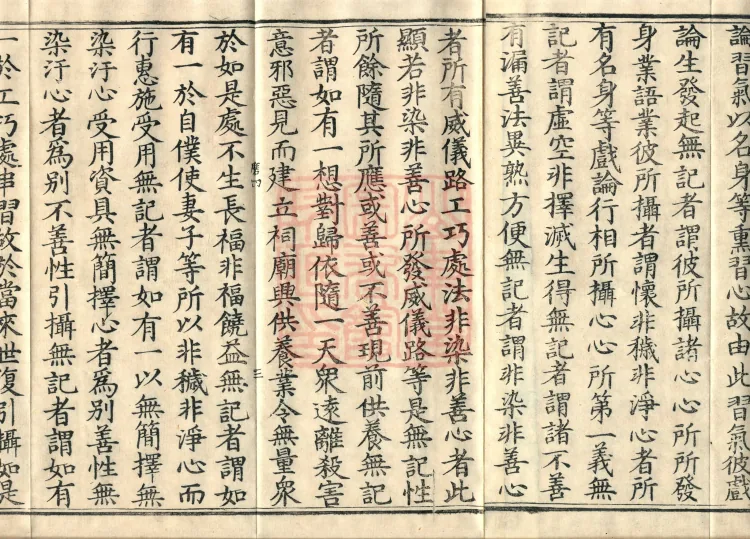 論習氣以名身等熏習心故由此習氣彼戲
論生發起無記者謂彼所攝諸心心所所發
身業語業彼所攝者謂懷非穢非淨心者所
有名身等戲論行相所攝心心所第一義無
記者謂虛空非擇滅生得無記者謂諸不善
有漏善法異熟方便無記者謂非染非善心
者所有威儀路工巧處法非染非善心者此
顯若非染非善心所發威儀路等是無記性
所餘隨其所應或善或不善現前供養無記
者謂如有一想對歸依隨一天眾遠離殺害
意邪惡見而建立祠廟興供養業令無量眾
於如是處不生長福非福饒益無記者謂如
有一於自僕使妻子等所以非穢非淨心而
行惠施受用無記者謂如有一以無簡擇無
染汙心受用資具無簡擇心者為別善性無
染汙心者為別不善性引攝無記者謂如有
一於工巧處串習故於當來世復引攝如是
三